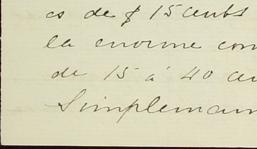 es de $ 15 cents
la enorme con
de 15 á 40 cen
Simplemen